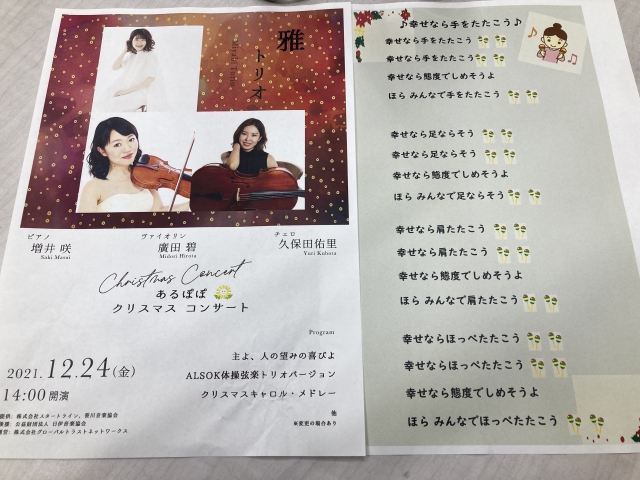 雅
トリオ
Miyabi Trio
ピアノ
増井 咲
Saki Masui
ヴァイオリン
廣田 碧
Midori Hirota
チェロ
久保田佑里
Yuri Kubota
Christmas Concert
あるぽぽ
クリスマス コンサート
Program
主よ、人の望みの喜びよ
ALSOK体操弦楽トリオバージョン
クリスマスキャロル・メドレー
他
※変更の場合あり
2021.12.24(金)
14:00 開演
提供: 株式会社スタートライン、菱川音楽協会
公益財団法人 日伊音楽協会
運営: 株式会社グローバルトラストネットワークス
♪幸せなら手をたたこう♪
幸せなら手をたたこう
幸せなら手をたたこう
幸せなら態度でしめそうよ
ほら みんなで手をたたこう
幸せなら足ならそう
幸せなら足ならそう
幸せなら態度でしめそうよ
ほら みんなで足ならそう
幸せなら肩たたこう
幸せなら肩たたこう
幸せなら態度でしめそうよ
ほら みんなで肩たたこう
幸せならほっぺたたこう
幸せならほっぺたたこう
幸せなら態度でしめそうよ
ほら みんなでほっぺたたこう